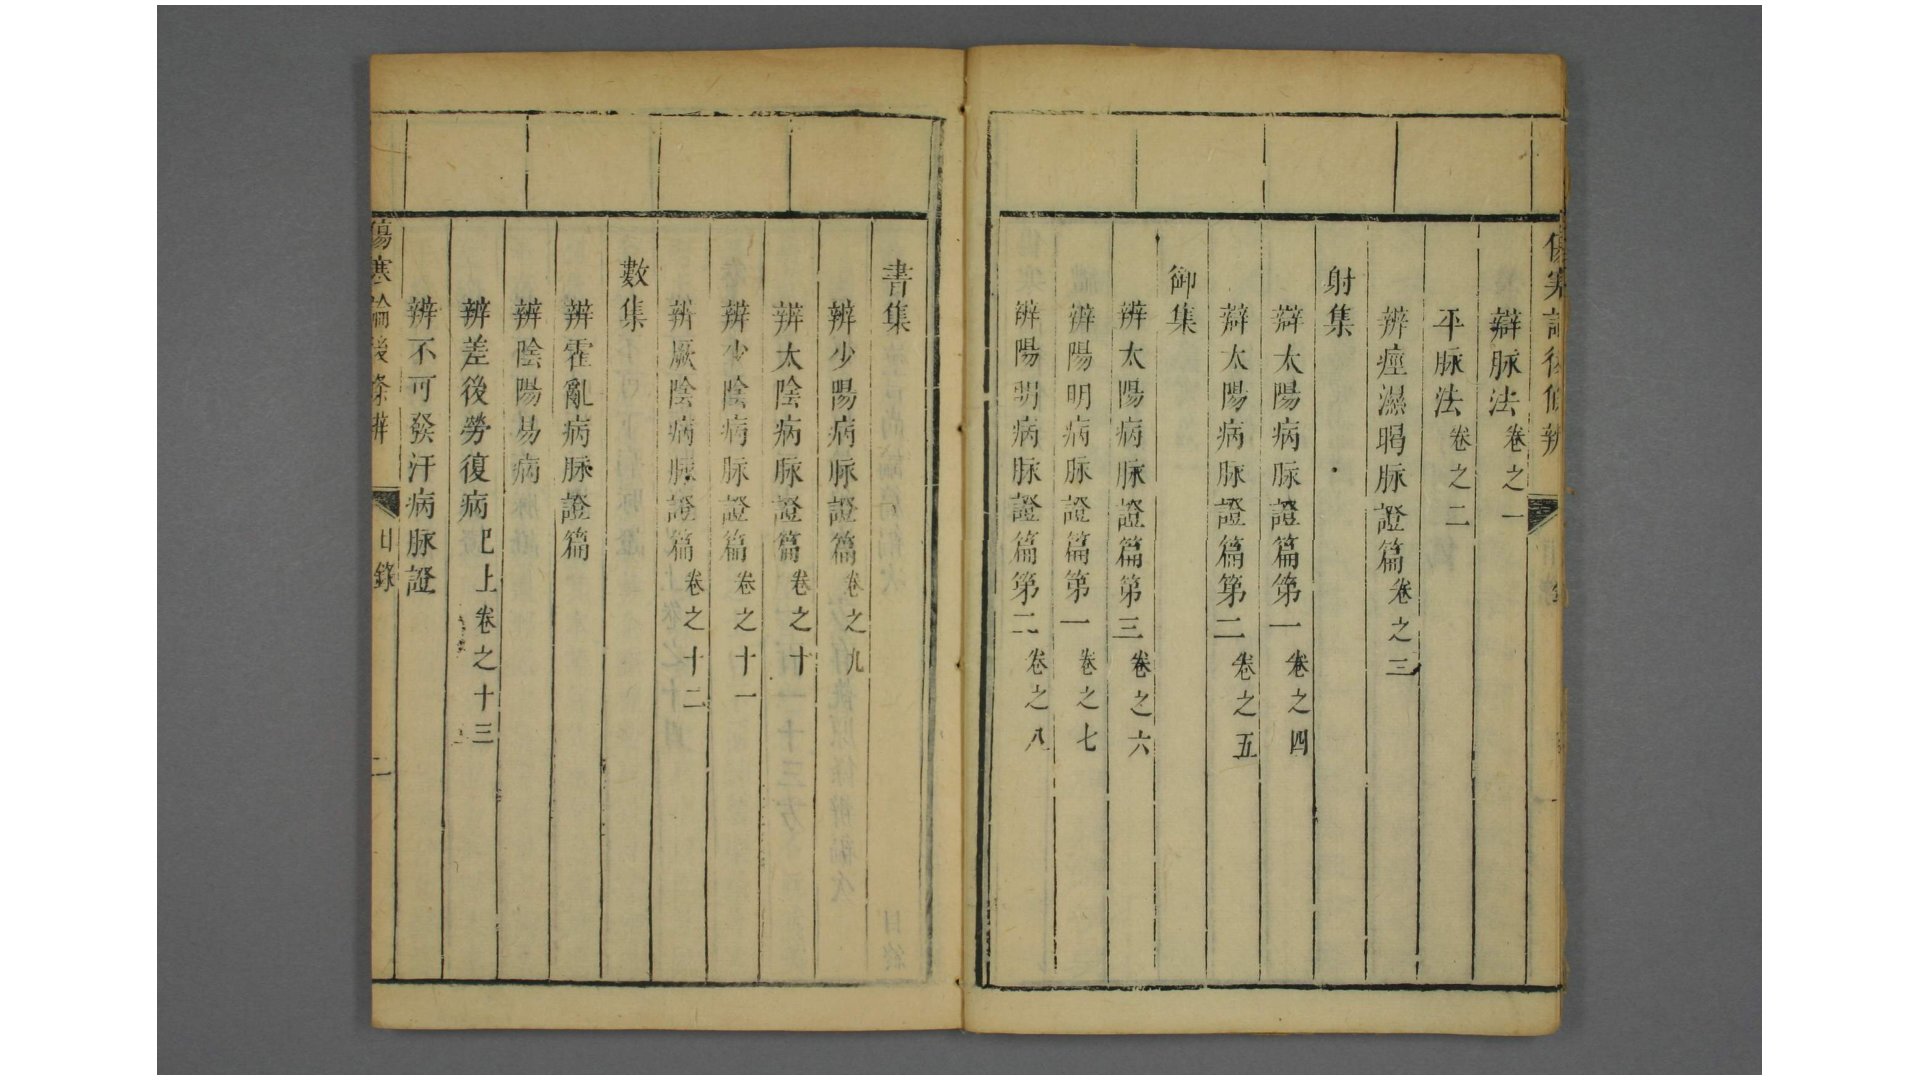 傷寒論後條辨
辯脉法卷之一
平脉法卷之二
辨痙濕暍脉證篇卷之三
射集
辯太陽病脉證篇第一卷之四
辯太陽病脉證篇第二卷之五
御集
辨太陽病脉證篇第三卷之六
辨陽明病脉證篇第一卷之七
辨陽明病脉證篇第二卷之八
書集
辨少陽病脉證篇卷之九
辨太陰病脉證篇卷之十
辨少陰病脉證篇卷之十一
辨厥陰病脉證篇卷之十二
數集
辨霍亂病脉證篇
辨陰陽易病
辨差後勞復病巳上卷之十三
辨不可發汗病脉證
傷寒論後條辨 目錄 二